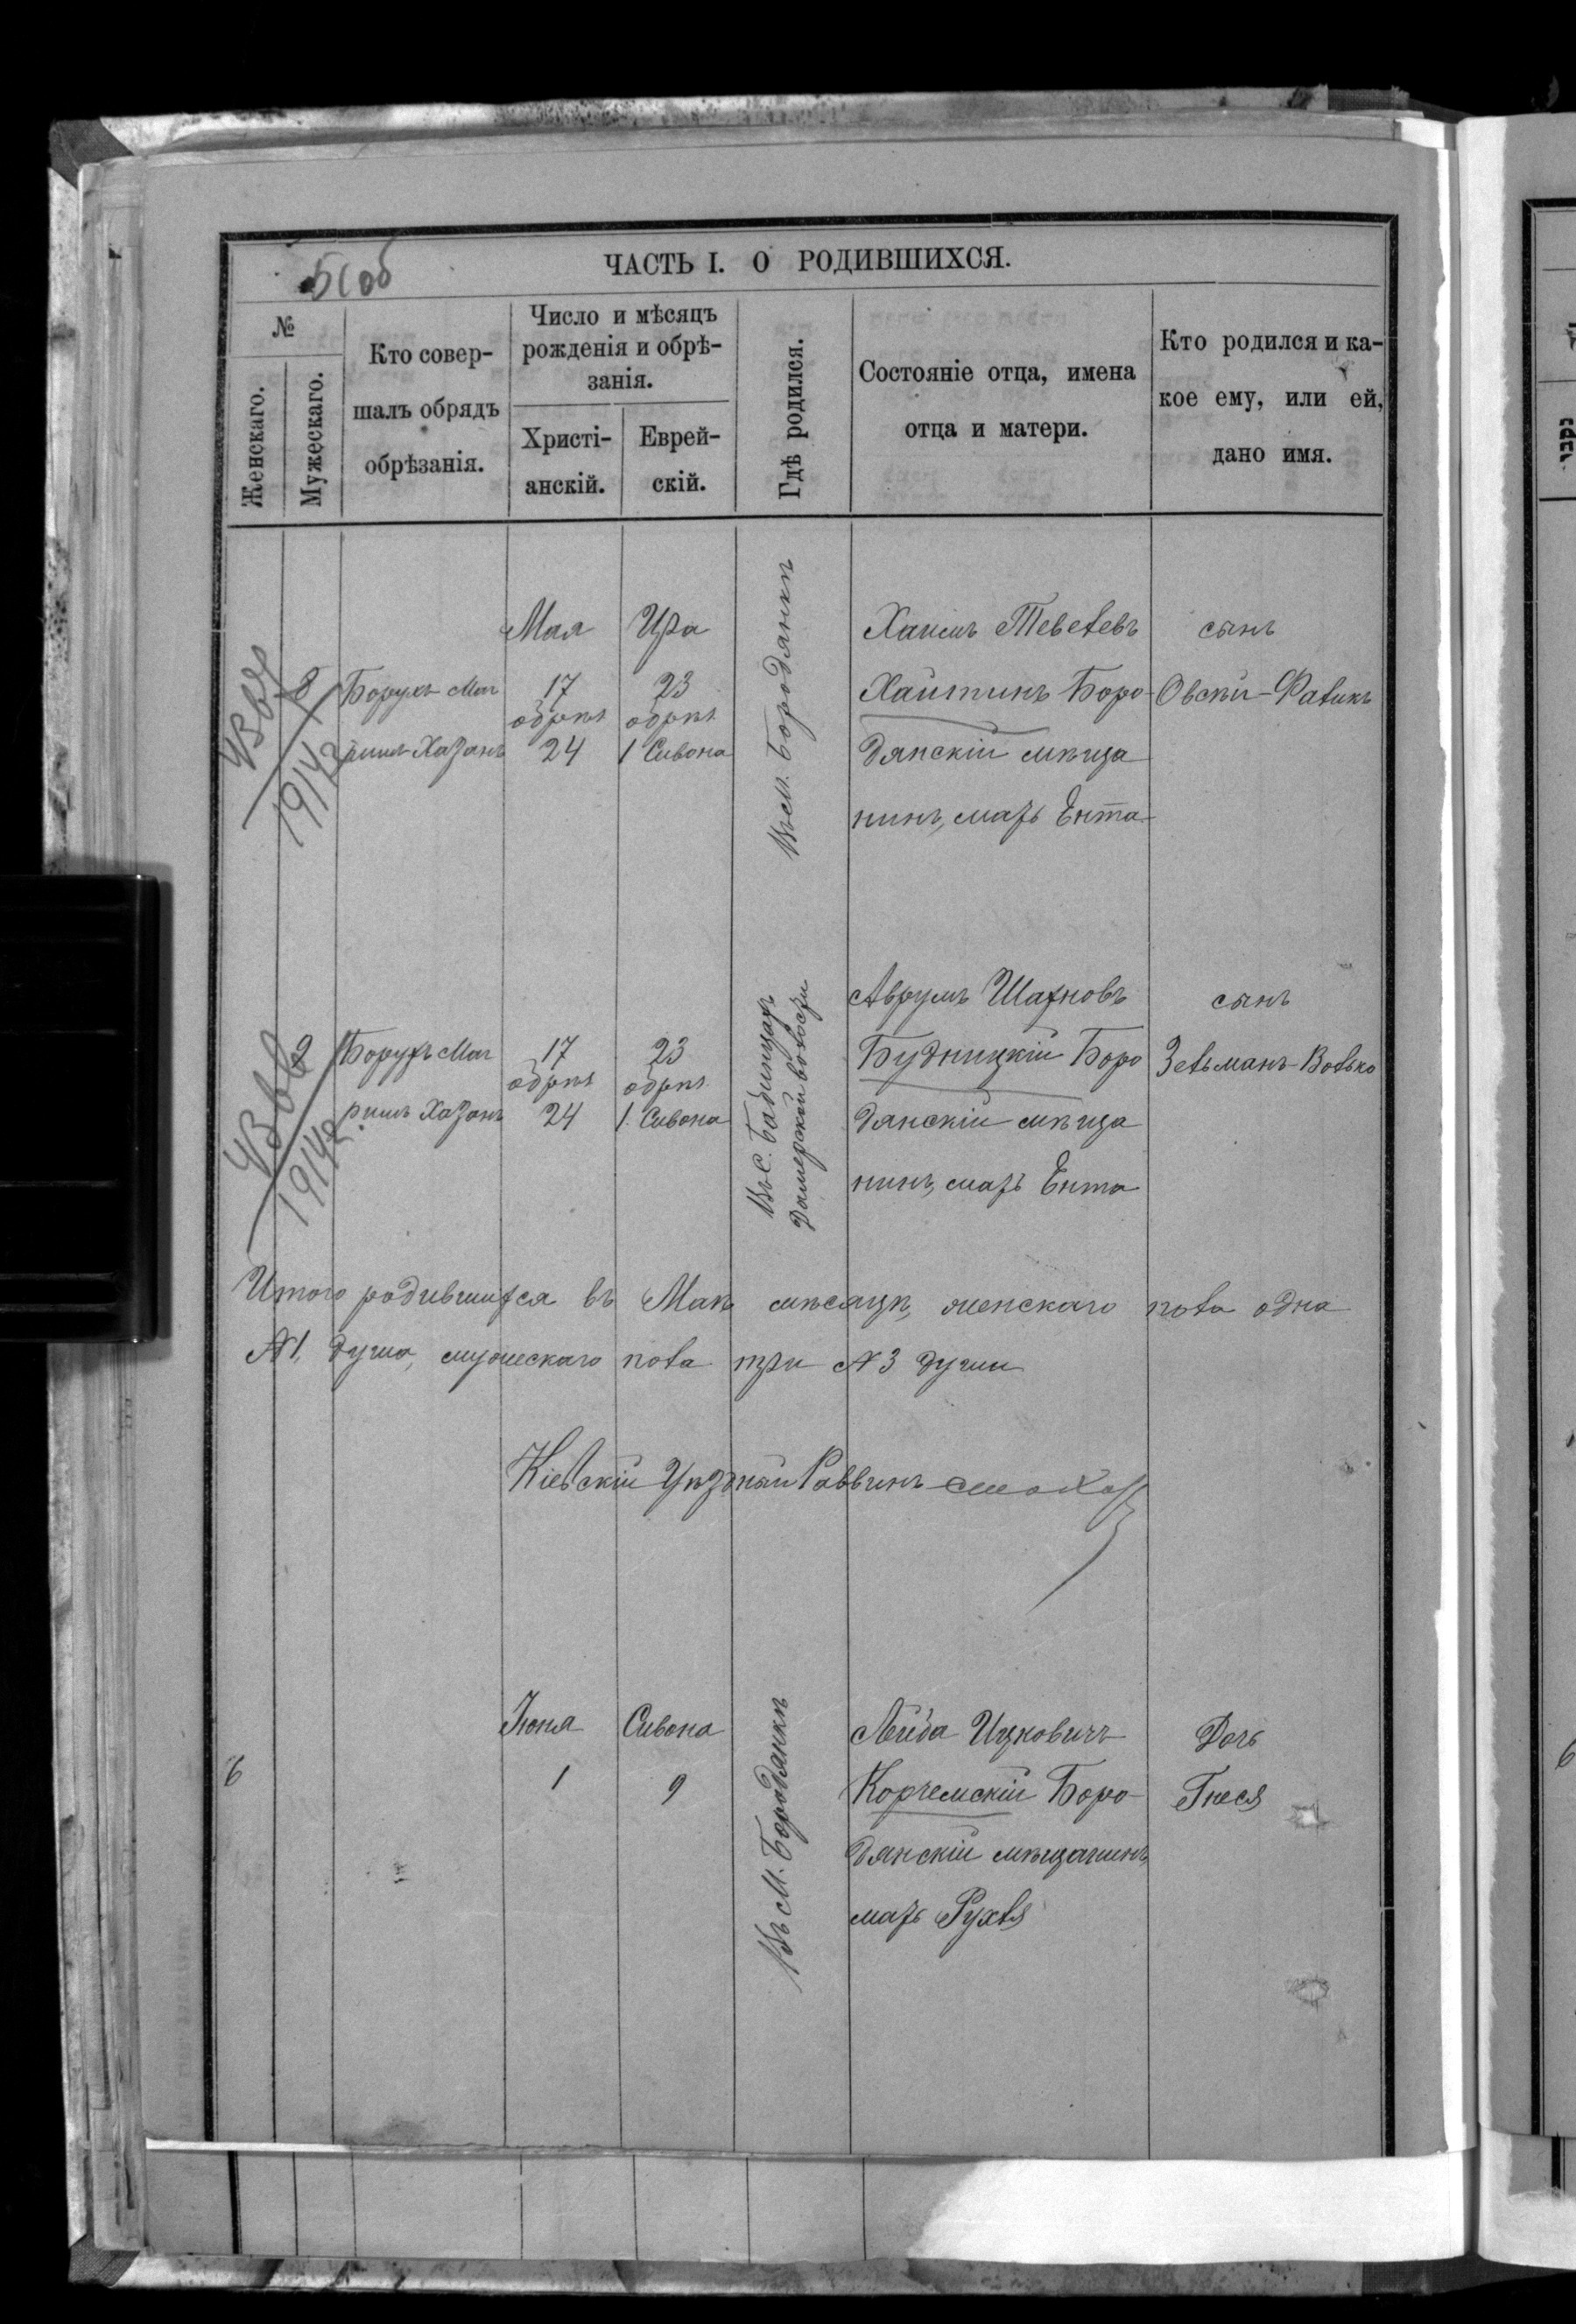 5 об
ЧАСТЬ I. О РОДИВШИХСЯ.
№
Женскаго.
Мужескаго.
Кто совер-
шалъ обрядъ
обрѣзанія.
Число и мѣсяцъ
рожденія и обрѣ-
занія.
Христі-
анскій.
Еврей-
скій.
Гдѣ родился.
Состояніе отца, имена
отца и матери.
Кто родился и ка-
кое ему, или ей,
дано имя.
8
1914
Борухъ Мог
рилъ Хазанъ
Мая
17
обрѣз
24
Ира
23
обрѣз
1 Сивона
Въ м. Бородянкѣ
Хаимъ Тевелевъ
Хайтинъ Боро-
дянскій мѣща
нинъ, мать Ента
сынъ
Овсѣй-Фаликъ
9
1914
Борухъ Мог
рилъ Хазанъ
17
обрѣз
24
23
обрѣз
1 Сивона
Въ с.
волости
Аврумъ Шахновъ
Будницкій Боро
дянскій мѣща
нинъ, мать Ента
сынъ
Зельманъ-Волько
Итого родившихся въ Маѣ мѣсяцѣ, женскаго пола одна
№ 1, душа, мужескаго пола три № 3 души
Кіевскій Уѣздный Раввинъ
6
Іюня
1
Сивона
9
Въ м. Бородянкѣ
Лейба Ицковичъ
Корчемскій Боро-
дянскій мѣщанинъ,
мать Рухля
Дочь
Гнеся
6